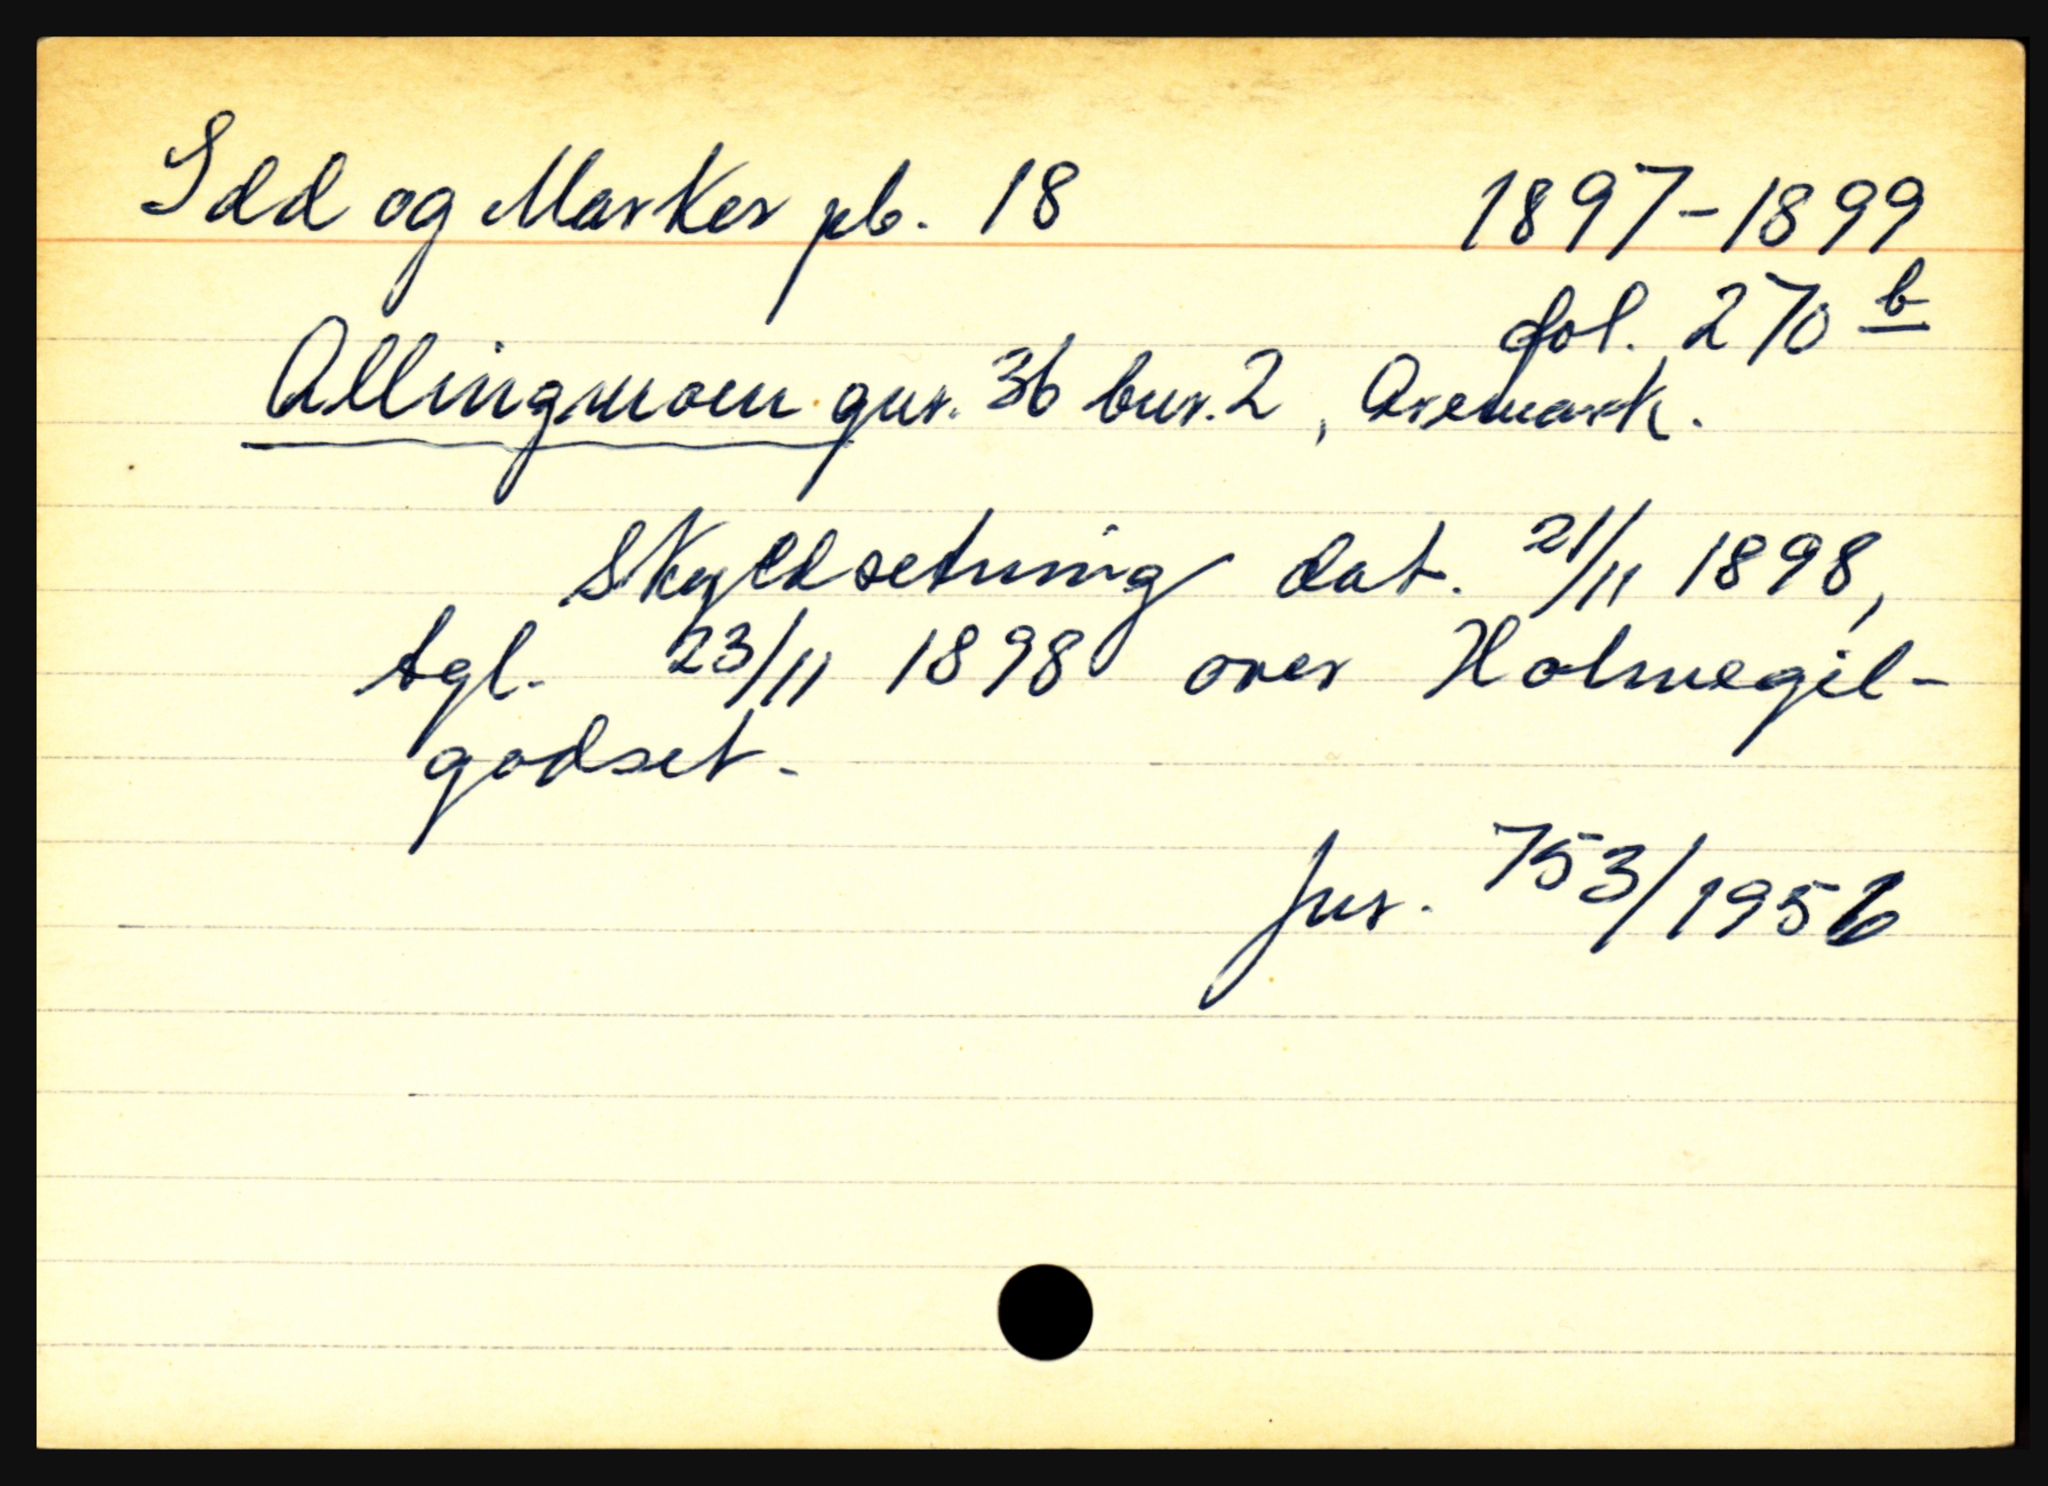 Idd og Marker pb. 18 1897-1899
fol. 270 b
Allingmoen gnr. 36 bnr. 2, Aremark.
Skyldsetning dat. 21/11 1898,
tgl. 23/11 1898 over Holmegil-
godset.
jnr. 753/1956